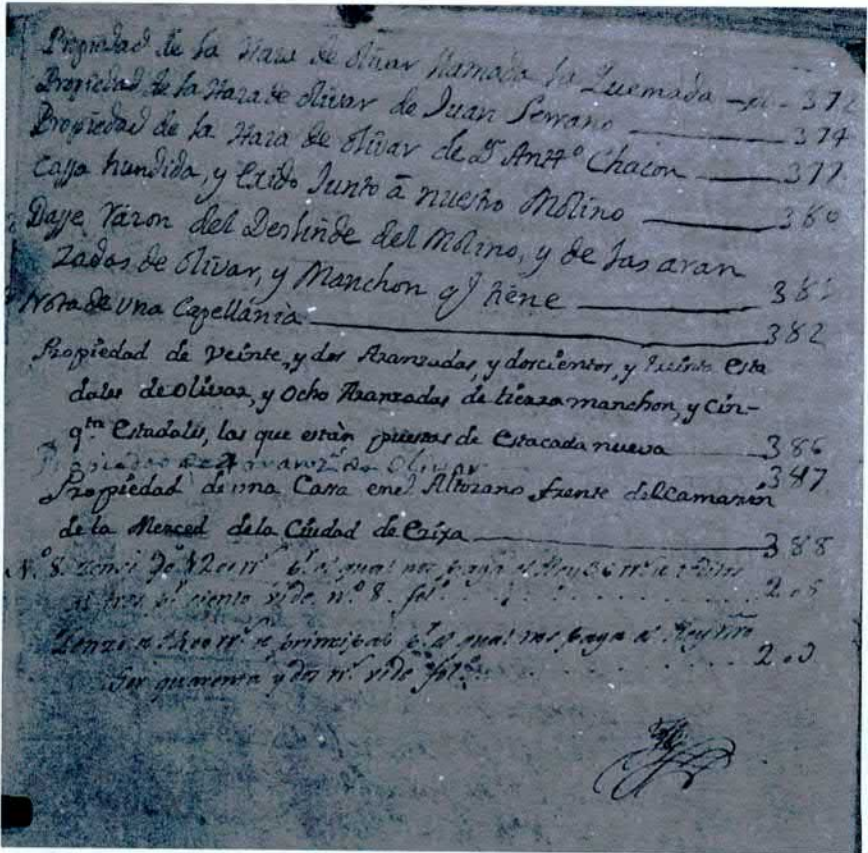 Propiedad de la Haza de olivar llamada la Quemada — 372
Propiedad de la Haza de olivar de Juan Serrano — 374
Propiedad de la Haza de olivar de Dn Antto Chacon — 377
Cassa hundida, y Exido Junto â nuestro Molino — 380
Dasse Razon del Deslinde del Molino, y de las aran
zadas de olivar, y Manchon q tiene — 381
Nota de una Capellania — 382
Propiedad de veinte, y dos Aranzadas, y doscientos, y treinta esta
dales de olivar, y ocho Aranzadas de tierra manchon, y cin-
qta Estadales, las que están puestas de Estacada nueva — 386
Propiedad de aranz.s de Olivar — 387
Propiedad de una Cassa enel Altozano frente del camarin
de la Merced dela Ciudad de Ezixa — 388
N.º 8. el qual nos paga el Rey
al tres pr ciento vide n.º 8. fol.
de principal pr el qual nos paga el Rey nro
Sr quarenta y dos rs vide fol.